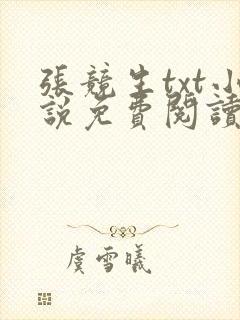 張競生txt小
說免費閱讀
虞雪曦